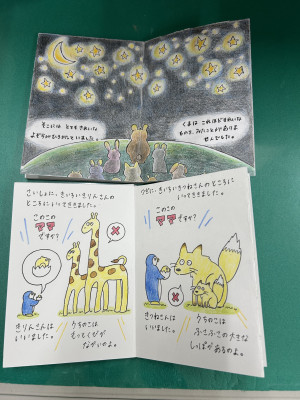 そこには とても きれいな
よぞらが ひろがっていました。
くまは これほどきれいな
ものを、みたことがありま
せんでした。
さいしょに、きいろいきりんさんの
ところにいってききました。
このこの
ママ
ですか?
きりんさんは
いいました。
うちのこは
もっとくびが
ながいのよ。
つぎに、きいろいきつねさんのところに
いってききました。
このこの
ママ
ですか?
きつねさんは
いいました。
うちのこは
ふさふさの大きな
しっぽがあるのよ。